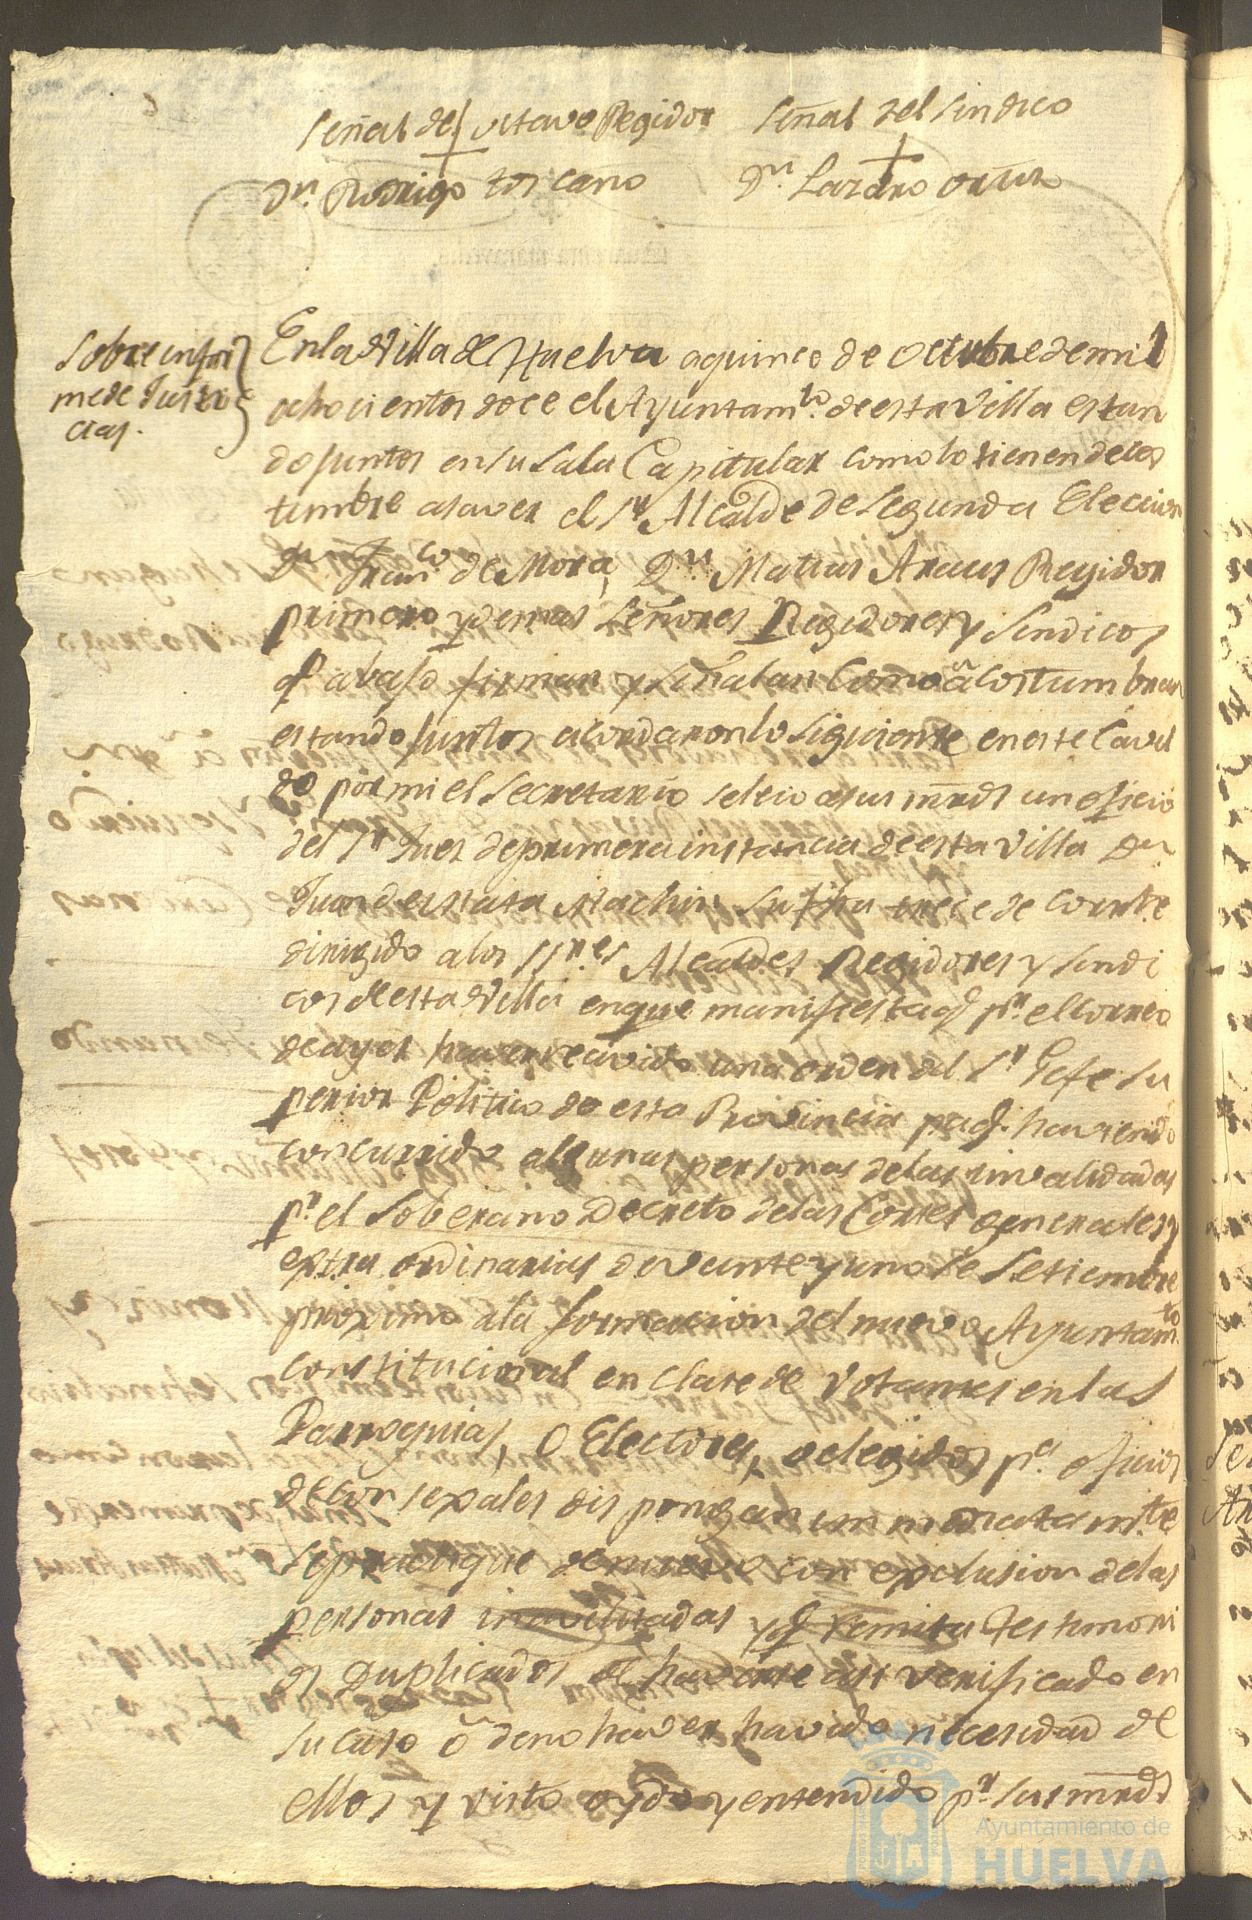 señal del octavo Regidor señal del sindico
Dn. Rodrigo toscano Dn. Lazaro orta
sobre infor
me de Justi
cias.
En la Villa de Huelva a quince de octubre de mil
ochocientos doce el Ayuntamto. de esta Villa estan
do juntos en su sala Capitular como lo tienen de cos
tumbre asaver el sr. Alcalde de segunda Eleccion
Dn. Franco. de Mora, Dn. Matias Araus Regidor
primero y demas señores Regidores y sindicos
q abaso firman y señalan como acostumbran
estando juntos acordaron lo siguiente en este Cavil
do por mi el secretario se leio a sus mrds un oficio
del sr Jues de primera instancia de esta Villa Dn
Juan de Mata Machin su fha trece de corrte
dirigido a los ssres Alcaldes Regidores y sindi
cos de esta Villa en que manifiesta q pr. el correo
de ayer haver recivido una orden del sr Gefe su
perior Politico de esta Provincia pa q. haviendo
concurrido algunas personas de las invalidadas
pr el soberano Decreto de las Cortes generales y
extra ordinarias de veinte y uno de setiembre
proximo a la formacion del nuevo Ayuntamto
constitucional en clase de votantes en las
Parroquias, o Electores, o elegidos pa. oficios
de consexales dispongan inmediatamte
se practique de nuevo con exclusion de las
personas inavilitadas y q remita testimoni
os Duplicados de haverse asi verificado en
su caso o de no haver havido necesidad de
ellos y visto oydo y entendido pr sus mrds
Ayuntamiento de
HUELVA